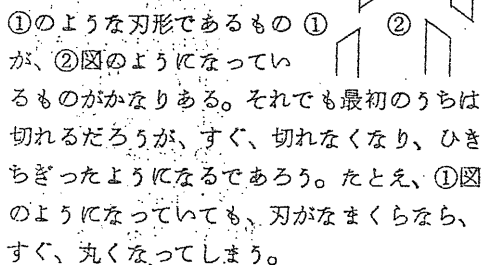 ①のような刃形であるもの ① ②
が、②図のようになってい
るものがかなりある。それでも最初のうちは
切れるだろうが、すぐ、切れなくなり、ひき
ちぎったようになるであろう。たとえ、①図
のようになっていても、刃がなまくらなら、
すぐ、丸くなってしまう。